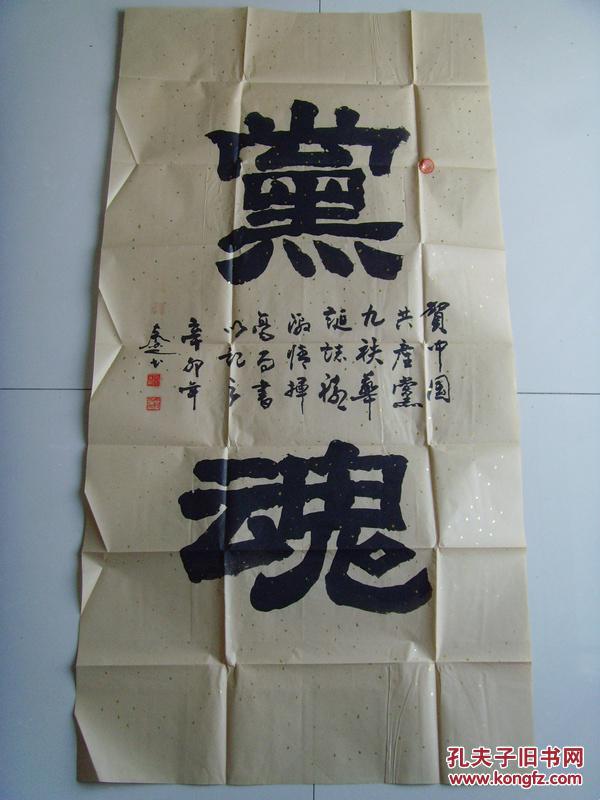 黨
魂
賀中國
共產黨
九秩華
誕誌禧
激情揮
毫而書
以記之
辛卯年
孔夫子旧书网
www.kongfz.com